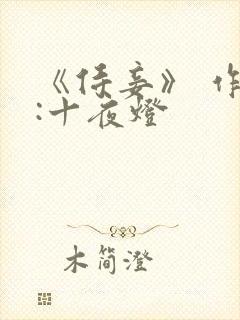 《侯妾》 作
:十夜燈
木简澄